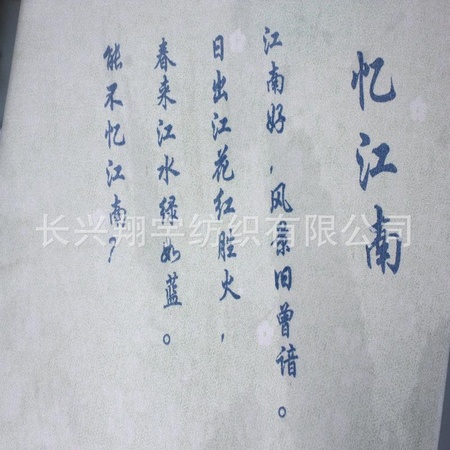 忆江南
江南好,风景旧曾谙。
日出江花红胜火,
春来江水绿如蓝。
能不忆江南?
长兴翔宇纺织有限公司